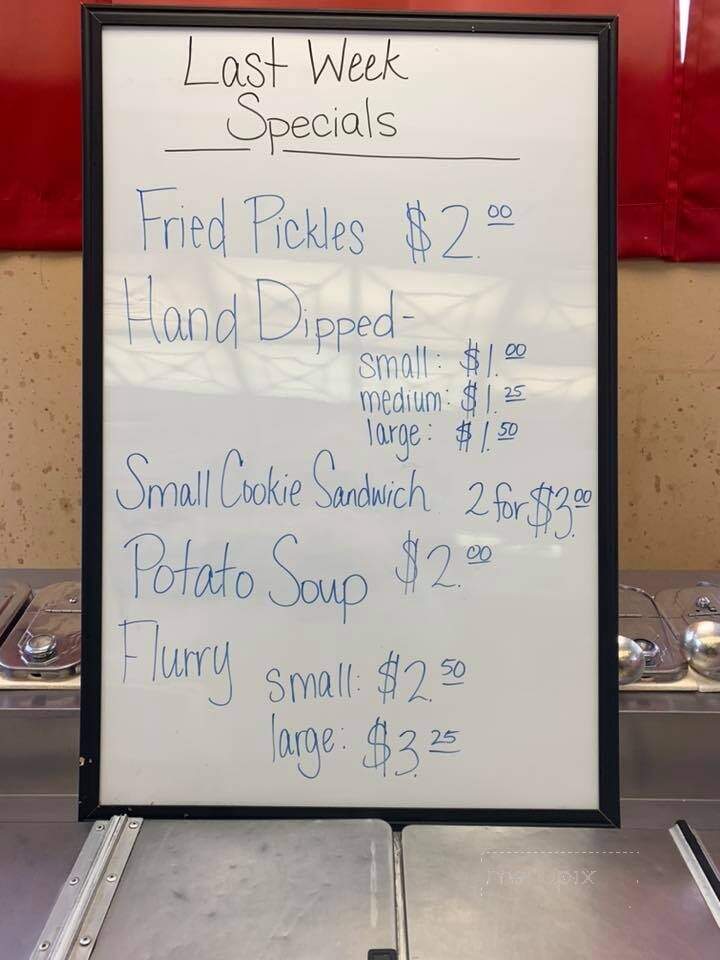 Last Week
Specials
Fried Pickles $2.00
Hand Dipped-
small: $1.00
medium: $1.25
large: $1.50
Small Cookie Sandwich 2 for $3.00
Potato Soup $2.00
Flurry small: $2.50
large: $3.25